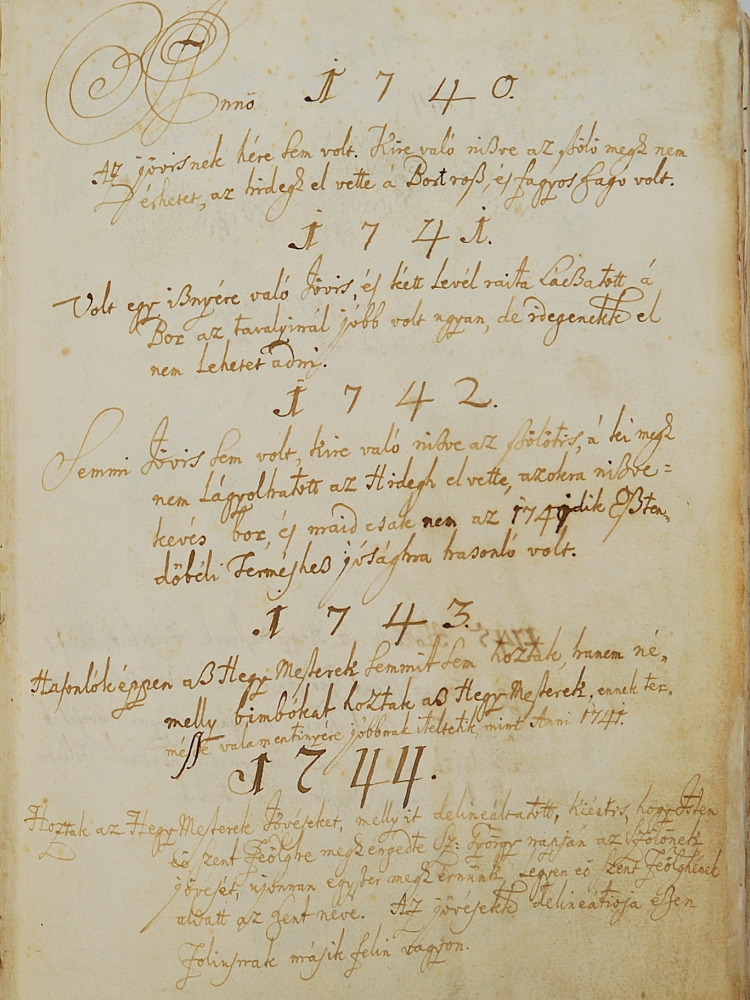 Anno 1740.
Az jövisnek hére sem volt. Kire való nißve az ßölö megh nem
érhetet, az hidegh el vette á Bort roß, és fagyos ßagó volt.
1741.
Volt egy ißnyére való Jövis, és kétt Levél raita Láczatott á
Bor az tavalyinál jóbb volt ugyan, de idegenekk el
nem Lehetet adni.
1742.
Semmi Jövis sem volt, kire való nißve az ßölötis, á ki megh
nem Lágyolhatott az Hidegh el vette, azokra nißve=
keevés bor, és maid csak nem az 1740dik Eßten„
döbéli Termésheß jósághra hasonló volt.
1743.
Hasonlóképpen aß Hegy Mesterek semmit sem hoztak, hanem né„
melly bimbókat hoztak aß Hegy Mesterek, ennek ter„
méße valamentinyére jobbnak iteltetik, mint Anni 1741.
1744.
Hoztak az Hegy Mesterek Jövéseket, melly itt delineáltatott, kiértis, hogy Isten
eö zent Feölgre megh engedte Sz: György napján az Szölönek
jövesét, ujonnan egyszer megh érnünk, Legyen eö Szent Feölghének
áldatt az Szent neve. Az jövesekk delineátioja eßen
Foliusnak másik felin vagyon.